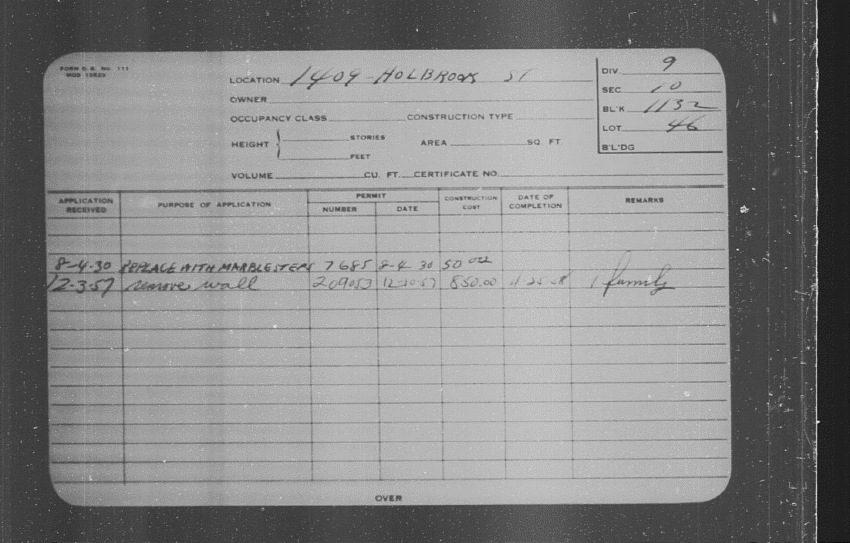 FORM B. R. NO. 111
LOCATION 1409 - HOLBROOK ST
OWNER
OCCUPANCY CLASS CONSTRUCTION TYPE
HEIGHT STORIES AREA SQ. FT.
FEET
VOLUME CU. FT. CERTIFICATE NO.
DIV. 9
SEC 10
BL'K 1132
LOT 46
B'L'DG
APPLICATION RECEIVED PURPOSE OF APPLICATION PERMIT NUMBER DATE CONSTRUCTION COST DATE OF COMPLETION REMARKS
8-4-30 REPLACE WITH MARBLE STEPS 7685 8-4 30 50
12-3-57 remove wall 209053 12-10-57 850.00 1 family
OVER